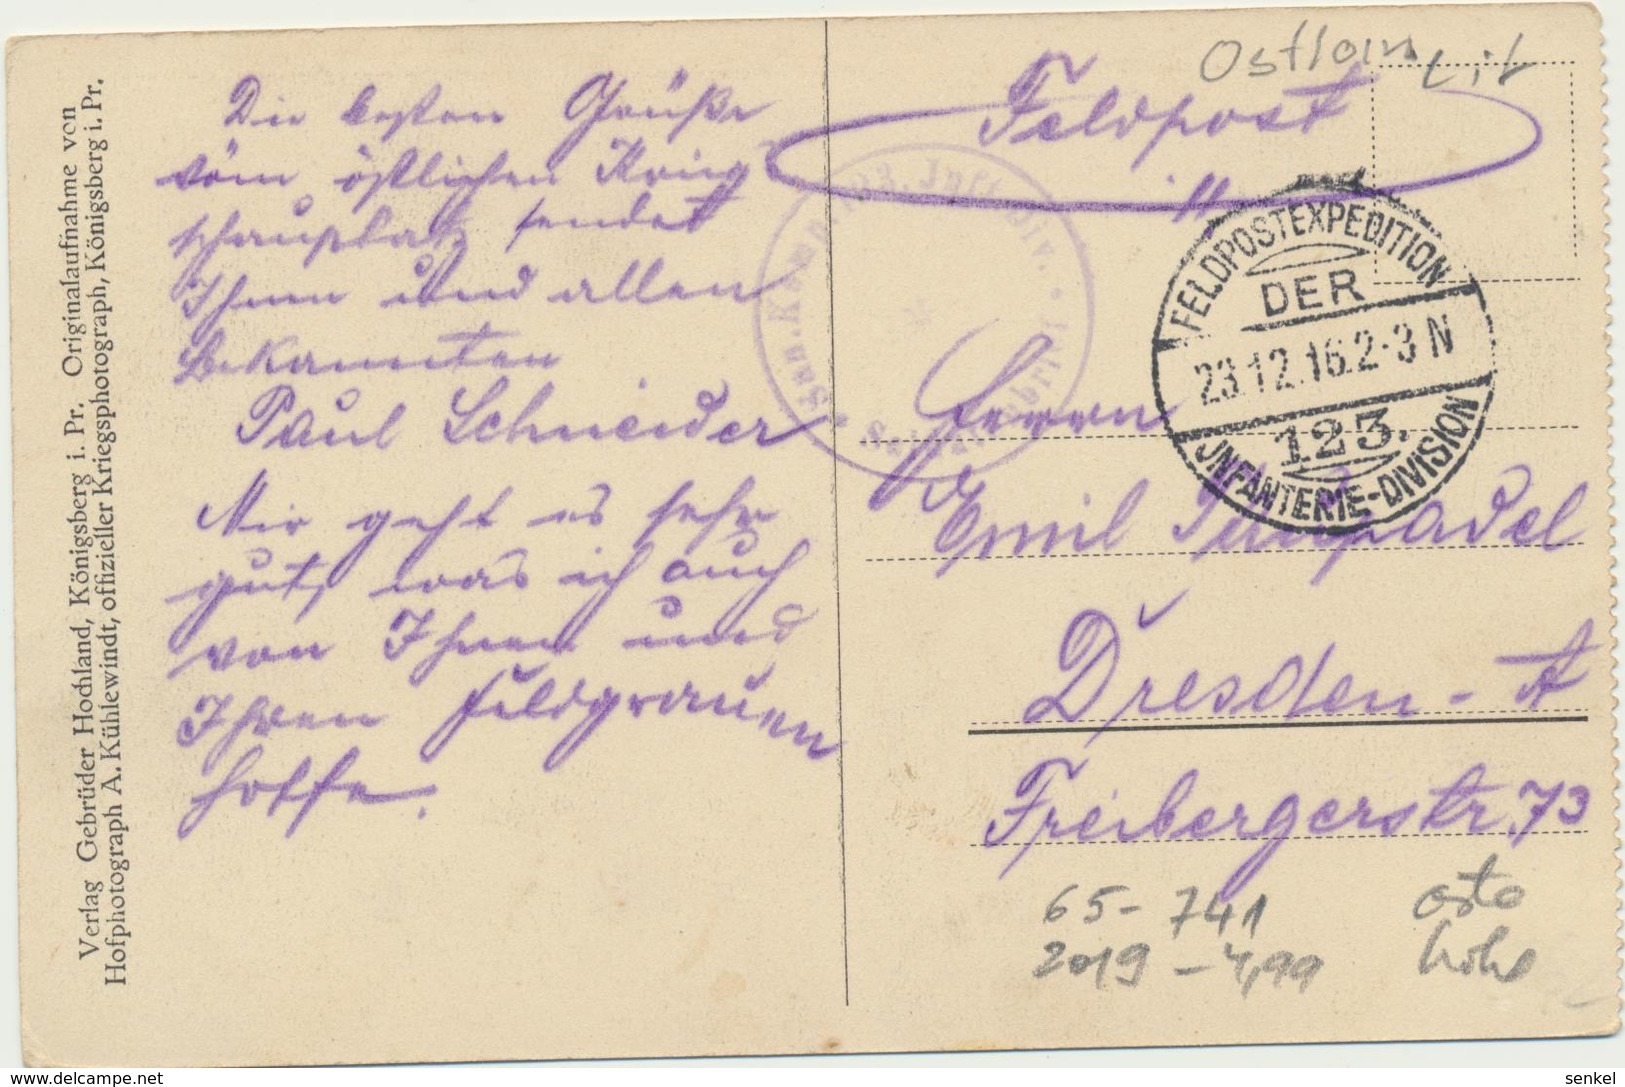 Verlag Gebrüder Hochland, Königsberg i. Pr. Originalaufnahme von
Hofphotograph A. Kühlewindt, offizieller Kriegsphotograph, Königsberg i. Pr.
Die besten Grüße
vom östlichen Krieg
schauplatz sendet
Ihnen und allen
Bekannten
Paul Schneider
Mir geht es sehr
gut, was ich auch
von Ihnen und
Ihren Feldgrauen
hoffe.
Feldpost
FELDPOSTEXPEDITION
DER
23.12.16.2-3 N
123.
JNFANTERIE-DIVISION
Herrn
Emil
Dresden-A
Freibergerstr. 73
65-741
2019-4,99
senkel